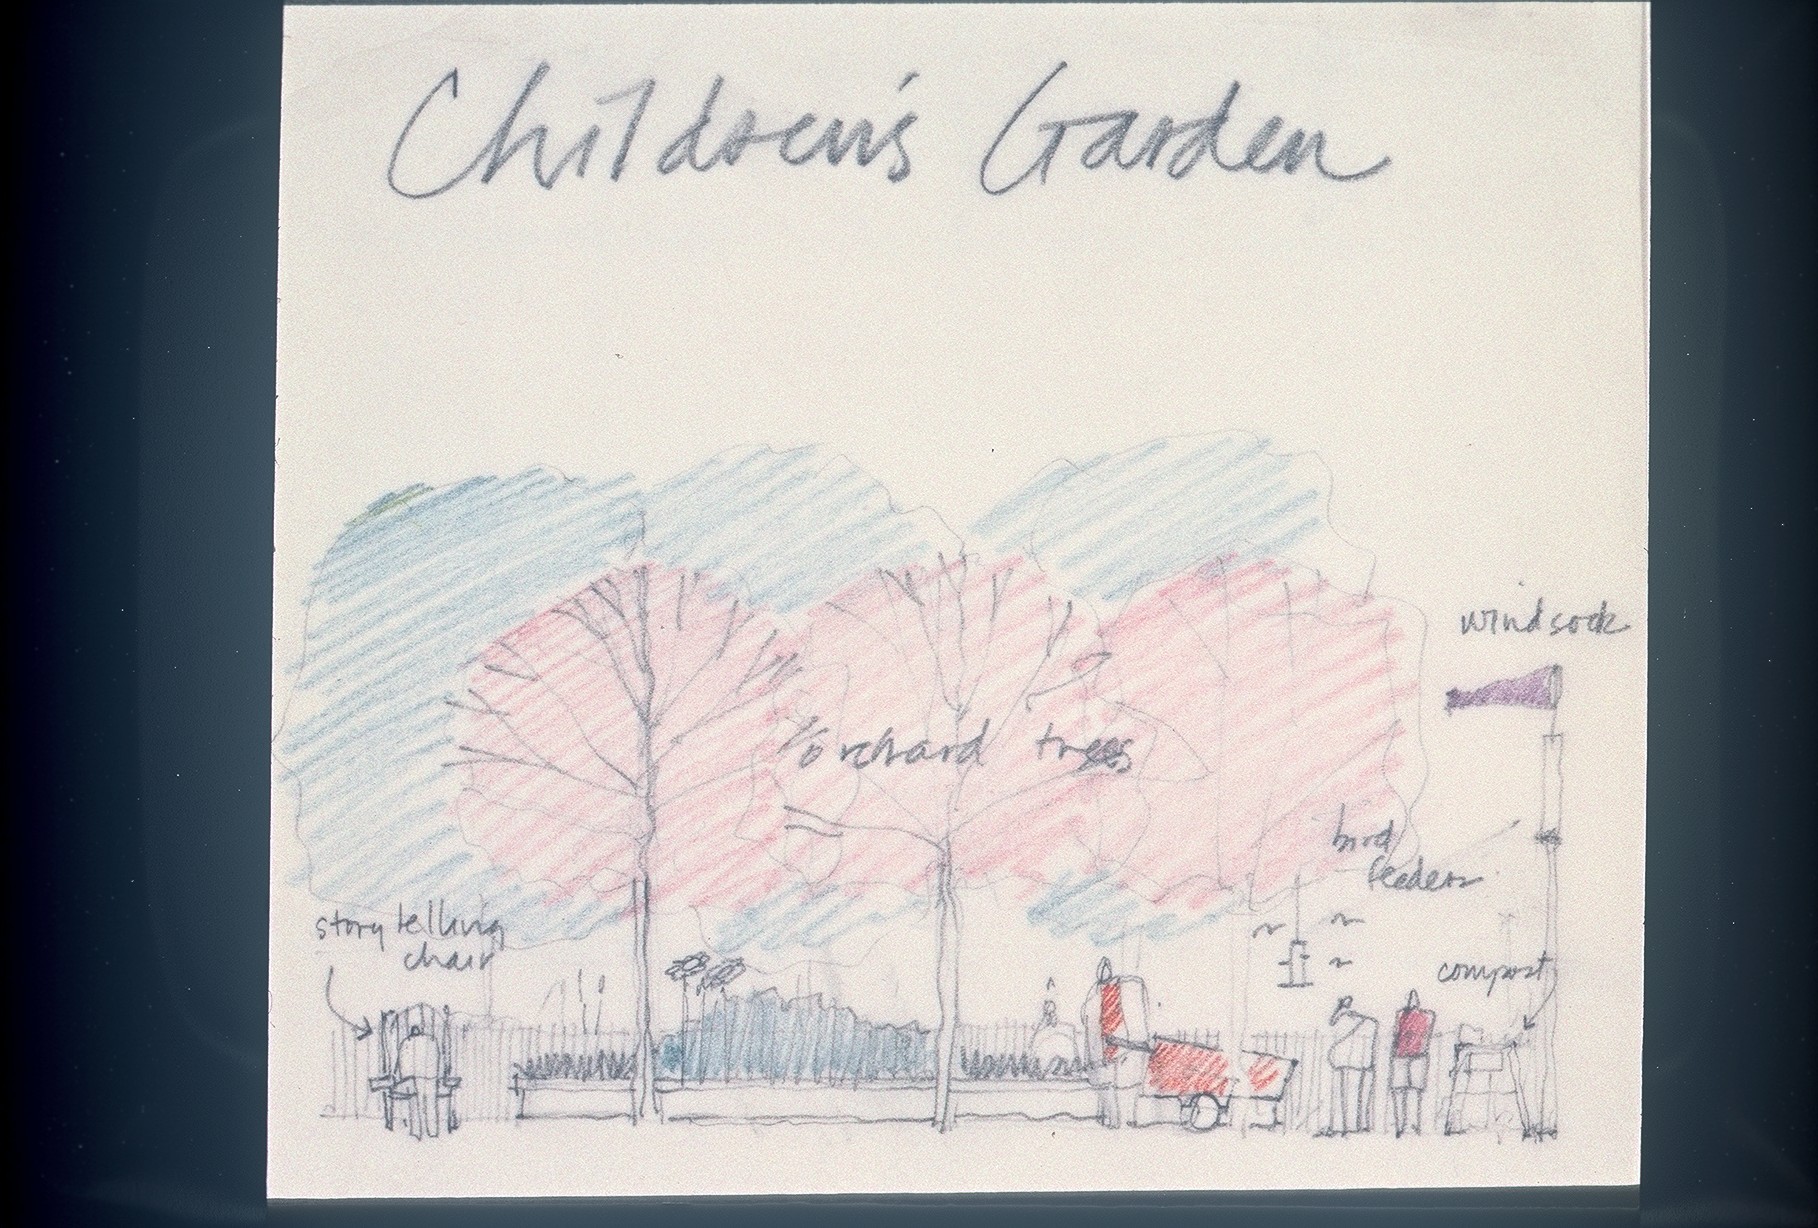 Children's Garden
windsock
orchard trees
bird
feeders
story telling
chair
compost